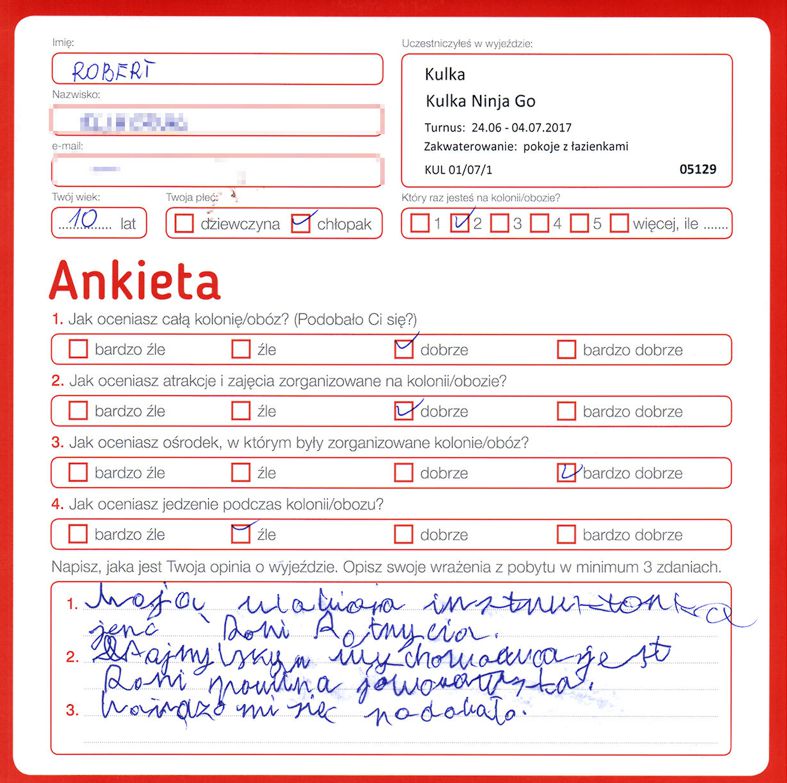 Imię:
ROBERT
Nazwisko:
e-mail:
Twój wiek:
10 lat
Twoja płeć:
dziewczyna chłopak
Uczestniczyłeś w wyjeździe:
Kulka
Kulka Ninja Go
Turnus: 24.06 - 04.07.2017
Zakwaterowanie: pokoje z łazienkami
KUL 01/07/1 05129
Który raz jesteś na kolonii/obozie?
1 2 3 4 5 więcej, ile .......
Ankieta
1. Jak oceniasz całą kolonię/obóz? (Podobało Ci się?)
bardzo źle źle dobrze bardzo dobrze
2. Jak oceniasz atrakcje i zajęcia zorganizowane na kolonii/obozie?
bardzo źle źle dobrze bardzo dobrze
3. Jak oceniasz ośrodek, w którym były zorganizowane kolonie/obóz?
bardzo źle źle dobrze bardzo dobrze
4. Jak oceniasz jedzenie podczas kolonii/obozu?
bardzo źle źle dobrze bardzo dobrze
Napisz, jaka jest Twoja opinia o wyjeździe. Opisz swoje wrażenia z pobytu w minimum 3 zdaniach.
1. Moja instruktorka
Pani
2. jest
Pani
3. mi się podobało.